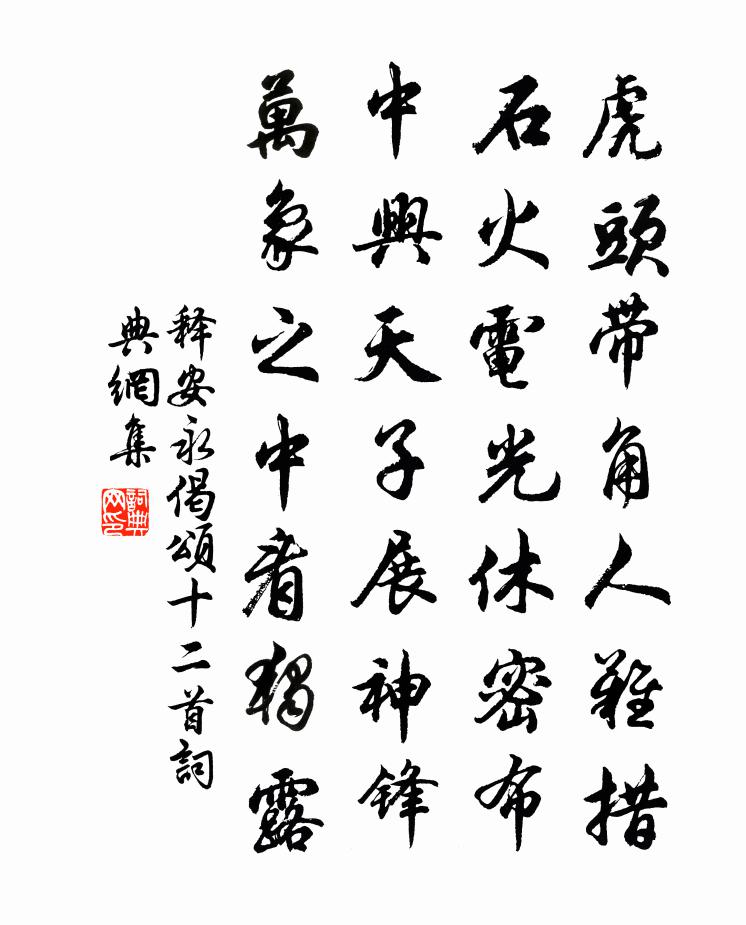 虎頭帶角人難措
石火電光休密布
中興天子展神鋒
萬象之中看獨露
释安永偈頌十二首詞
典網集
詞典网印